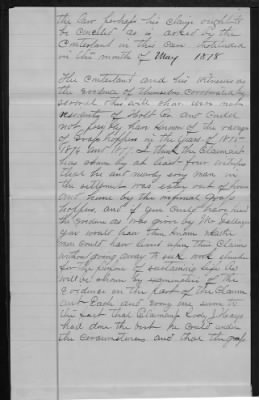 the law perhaps his claim ought to
be Cancelled as is asked by the
Contestant in this Case
in this month of May 1878
The Contestant and his Witnesses as
the Evidence of themselves corroborated by
several others will show were not
residents of Holt Co and Could
not possibly have known of the ravages
of Grass hoppers in the years of 1875
1876 and 1877 and think the Claimant
has shown by at least four witnesses
that he and nearly every man in
the settlement was eaten out of house
and home by the infernal Grass
hoppers and if you Could have heard
the Evidence as was given by Mr
you would have then known neither
man could have lived upon this Claim
without going away to seek work
for the purpose of sustaining life as
will be shown by examination of the
Evidence on the part of the Claimant
and Each and Every one swore to
the fact that Claimant Levi J Hays
had done the best he Could under
the Circumstances and that the Grass